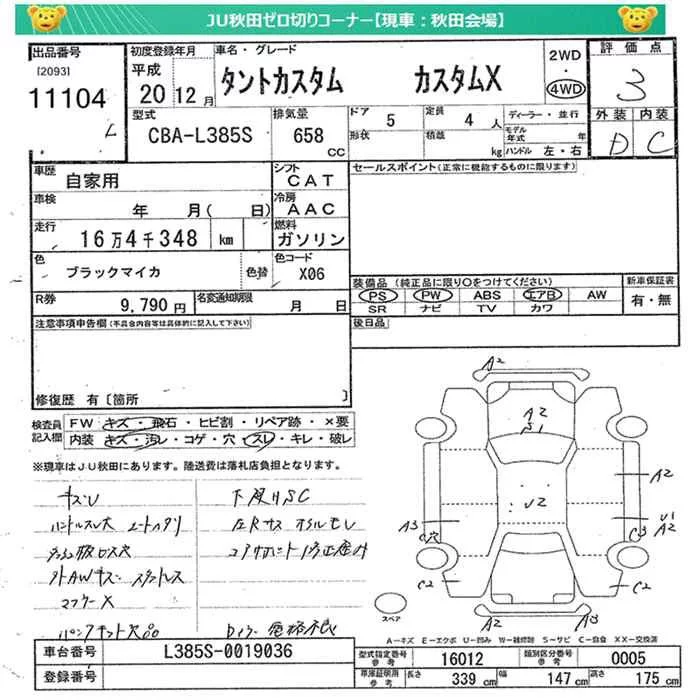 JU秋田ゼロ切りコーナー【現車：秋田会場】
出品番号
[2093]
11104
初度登録年月
平成
20年12月
車名・グレード
タントカスタム カスタムX
2WD
・
4WD
評価点
3
外装 内装
D C
型式
CBA-L385S
排気量
658
CC
ドア 5
形状
定員 4人
積載 kg
ディーラー・並行
モデル年式 年
ハンドル 左・右
車歴
自家用
シフト
CAT
車検
年 月( 日)
冷房
AAC
走行
16万4千348 km
燃料
ガソリン
色
ブラックマイカ
色替
色コード
X06
R券
9,790円
名変通知期限
月 日
セールスポイント(正常に機能するものに限ります)
装備品(純正品に限り○をつけてください)
PS PW ABS エアB AW
SR ナビ TV カワ
新車保証書
有・無
後日品
注意事項申告欄(不具合内容等は具体的に記入して下さい)
修復歴 有〔箇所 〕
検査員記入欄
FW キズ・飛石・ヒビ割・リペア跡・×要
内装 キズ・汚レ・コゲ・穴・スレ・キレ・破レ
※現車はJU秋田にあります。陸送費は落札店負担となります。
キズU
下廻りSC
マフラーX
A2
A2
S1
U2
A2
U1
A2
A3
C穴
C3
C2
C2
A2
A3
スペア
A－キズ E－エクボ U－凹み W－補修跡 S－サビ C－腐食 XX－交換済
車台番号
L385S-0019036
登録番号
型式指定番号
参考
16012
類別区分番号
参考
0005
車庫証明用
参考
長さ 339 cm
幅 147 cm
高さ 175 cm